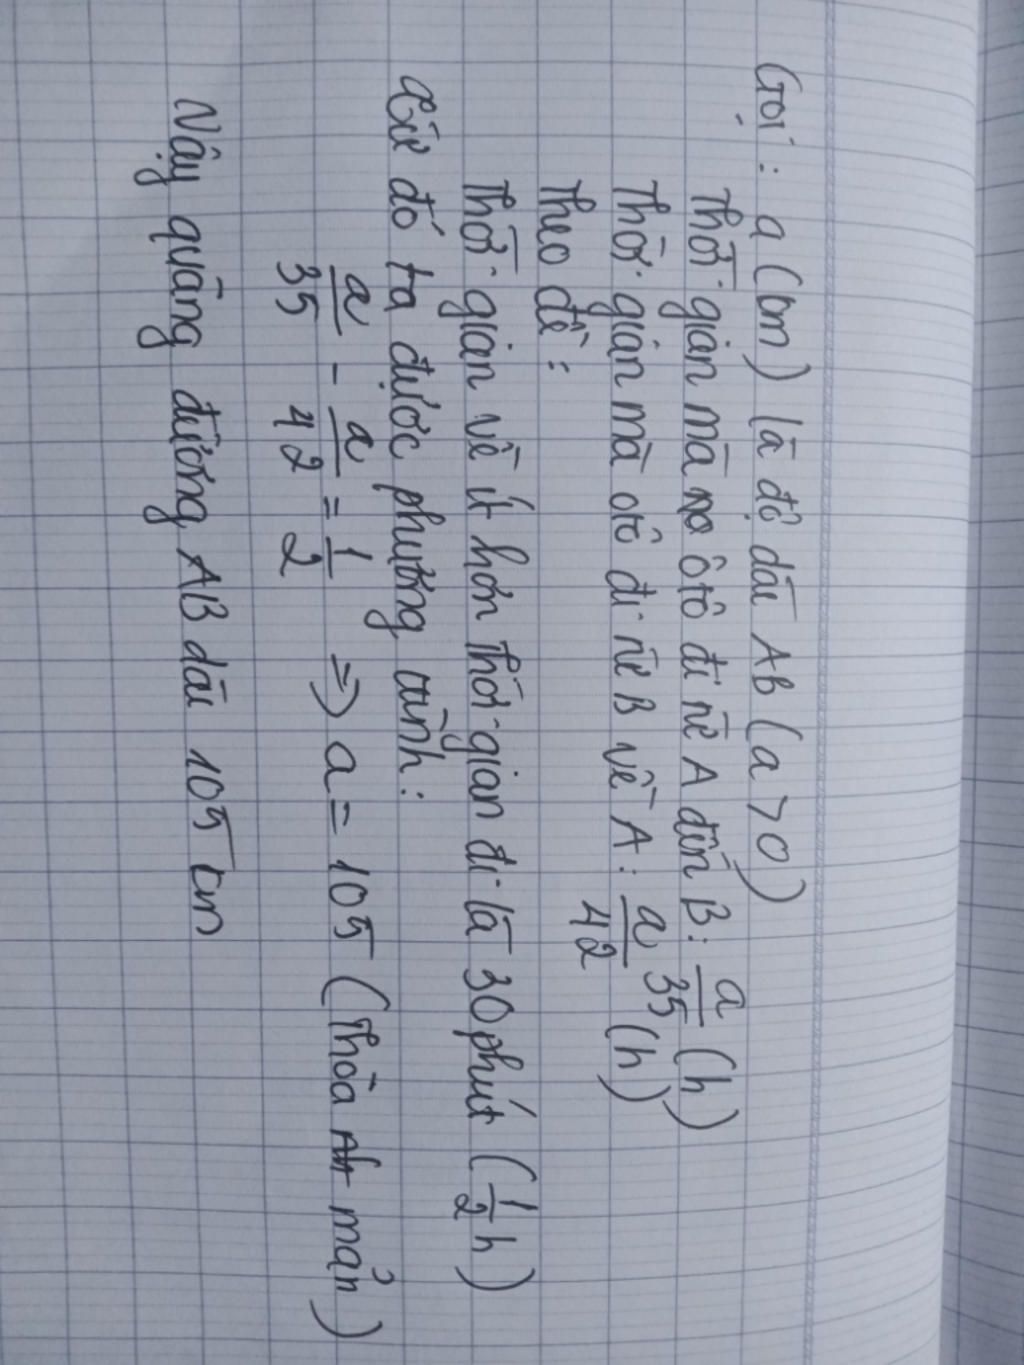 Gọi : a (km) là độ dài AB (a > 0)
Thời gian mà ôtô đi từ A đến B: a/35 (h)
Thời gian mà ôtô đi từ B về A : a/42 (h)
Theo đề :
Thời gian về ít hơn thời gian đi là 30 phút (1/2 h)
Từ đó ta được phương trình :
a/35 - a/42 = 1/2 => a = 105 (Thỏa mản)
Vậy quãng đường AB dài 105 km